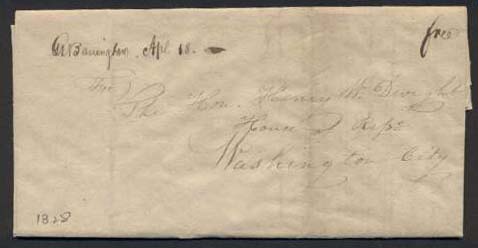 Gt Barrington Apl 18. free
For
The Hon. Henry W. Dwight
House of Reps
Washington City
1828